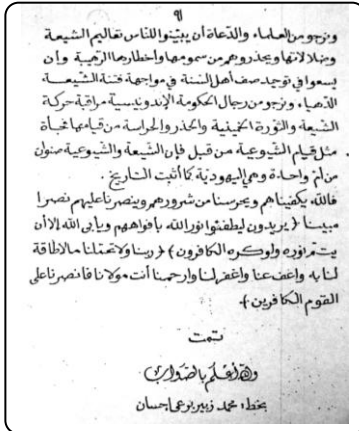 ٩١
ونرجو من العلماء والدعاة أن يبينوا للناس تعاليم الشيعة
وضلالاتها ويحذروهم من سمومها وأخطارها الرهيبة وأن
يسعوا في توحيد صف أهل السنة في مواجهة فتنة الشيعة
الدهياء ونرجو من رجال الحكومة الإندونيسية مراقبة حركة
الشيعة والثورة الخمينية والحذر والحراسة من قيامها فجأة
مثل قيام الشيوعية من قبل فإن الشيعة والشيوعية صنوان
من أم واحدة وهي اليهودية كما أثبت التاريخ .
فالله يكفيناهم ويحرسنا من شرورهم وينصرنا عليهم نصرا
مبينا ( يريدون ليطفئوا نور الله بأفواههم ويأبى الله إلا أن
يتم نوره ولو كره الكافرون ) ( ربنا ولا تحملنا ما لا طاقة
لنا به واعف عنا واغفر لنا وارحمنا أنت مولانا فانصرنا على
القوم الكافرين ) .
تمت
والله أعلم بالصواب
بخط: محمد زبير بوعي إحسان